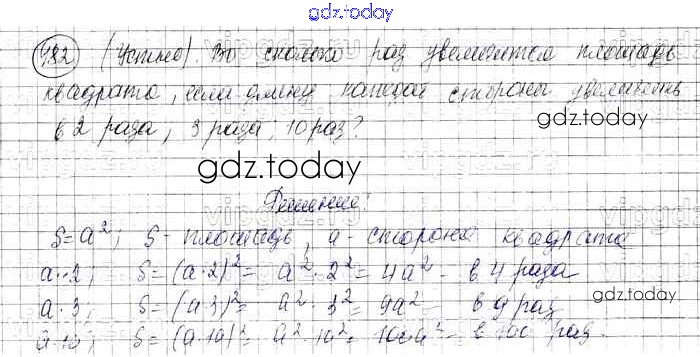 gdz.today
482 (Устно). Во сколько раз увеличится площадь
квадрата, если длину каждой стороны увеличить
в 2 раза, 3 раза, 10 раз?
gdz.today
gdz.today
Решение:
S=a²; S- площадь, a- сторона квадрата
a·2; S=(a·2)²= a²·2²=4a²- в 4 раза
a·3; S=(a·3)²= a²·3²=9a²- в 9 раз
gdz.today
a·10; S=(a·10)²= a²·10²=100a²- в 100 раз.